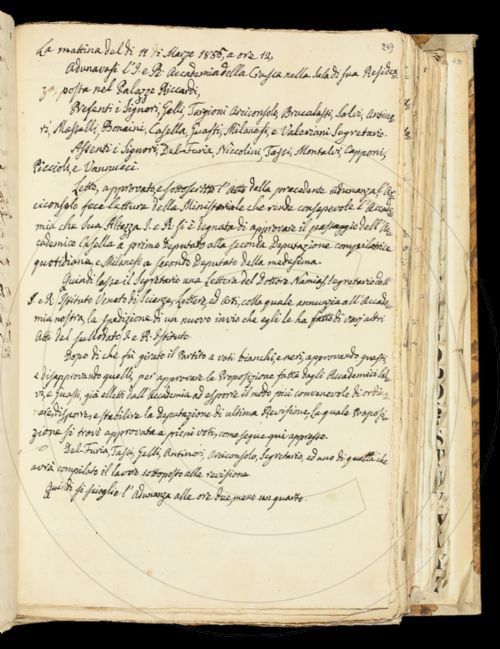 249
La mattina del dì 11 di Marzo 1856, a ore 12,
Adunavasi l'I. e R. Accademia della Crusca nella Sala di sua Residen-
za posta nel Palazzo Riccardi,
Presenti i Signori, Gelli, Targioni Arciconsolo, Brucalassi, Salvi, Antino-
ri, Masselli, Bonaini, Casella, Guasti, Milanesi, e Valeriani Segretario.
Assenti i Signori, Del Furia, Niccolini, Tassi, Montalvi, Capponi,
Piccioli, e Vannucci.
Letto, approvato, e sottoscritto l'Atto della precedente adunanza l'Ar-
ciconsolo fece lettura della Ministeriale che rende consapevole l'Accade-
mia che Sua Altezza I. e R. si è degnata di approvare il passaggio dell'Ac-
cademico Casella a primo Deputato alla seconda Deputazione compilatrice
quotidiana, e Milanesi a secondo Deputato della medesima.
Quindi lesse il Segretario una Lettera del Dottore Namias Segretario dell'
I. e R. Istituto Veneto di Scienze, Lettere, ed Arti, colla quale annunzia all'Accade-
mia nostra, la spedizione di un nuovo invio che egli le ha fatto di varj altri
Atti del sullodato I. e R. Istituto.
Dopo di che fu girato il Partito a voti bianchi, e neri, approvando questi,
e disapprovando quelli, per approvare la Proposizione fatta dagli Accademici Sal-
vi, e Guasti, già eletti dall'Accademia ad esporre il modo più convenevole di ordi-
nare, disporre, e stabilire la Deputazione di ultima Revisione, la quale Proposi-
zione si trovò approvata a pieni voti, come segue qui appresso.
Del Furia, Tassi, Gelli, Antinori, Arciconsolo, Segretario, ed uno di quelli che
avrà compilato il lavoro sottoposto alla revisione.
Quindi si sciolse l'Adunanza alle ore due meno un quarto.